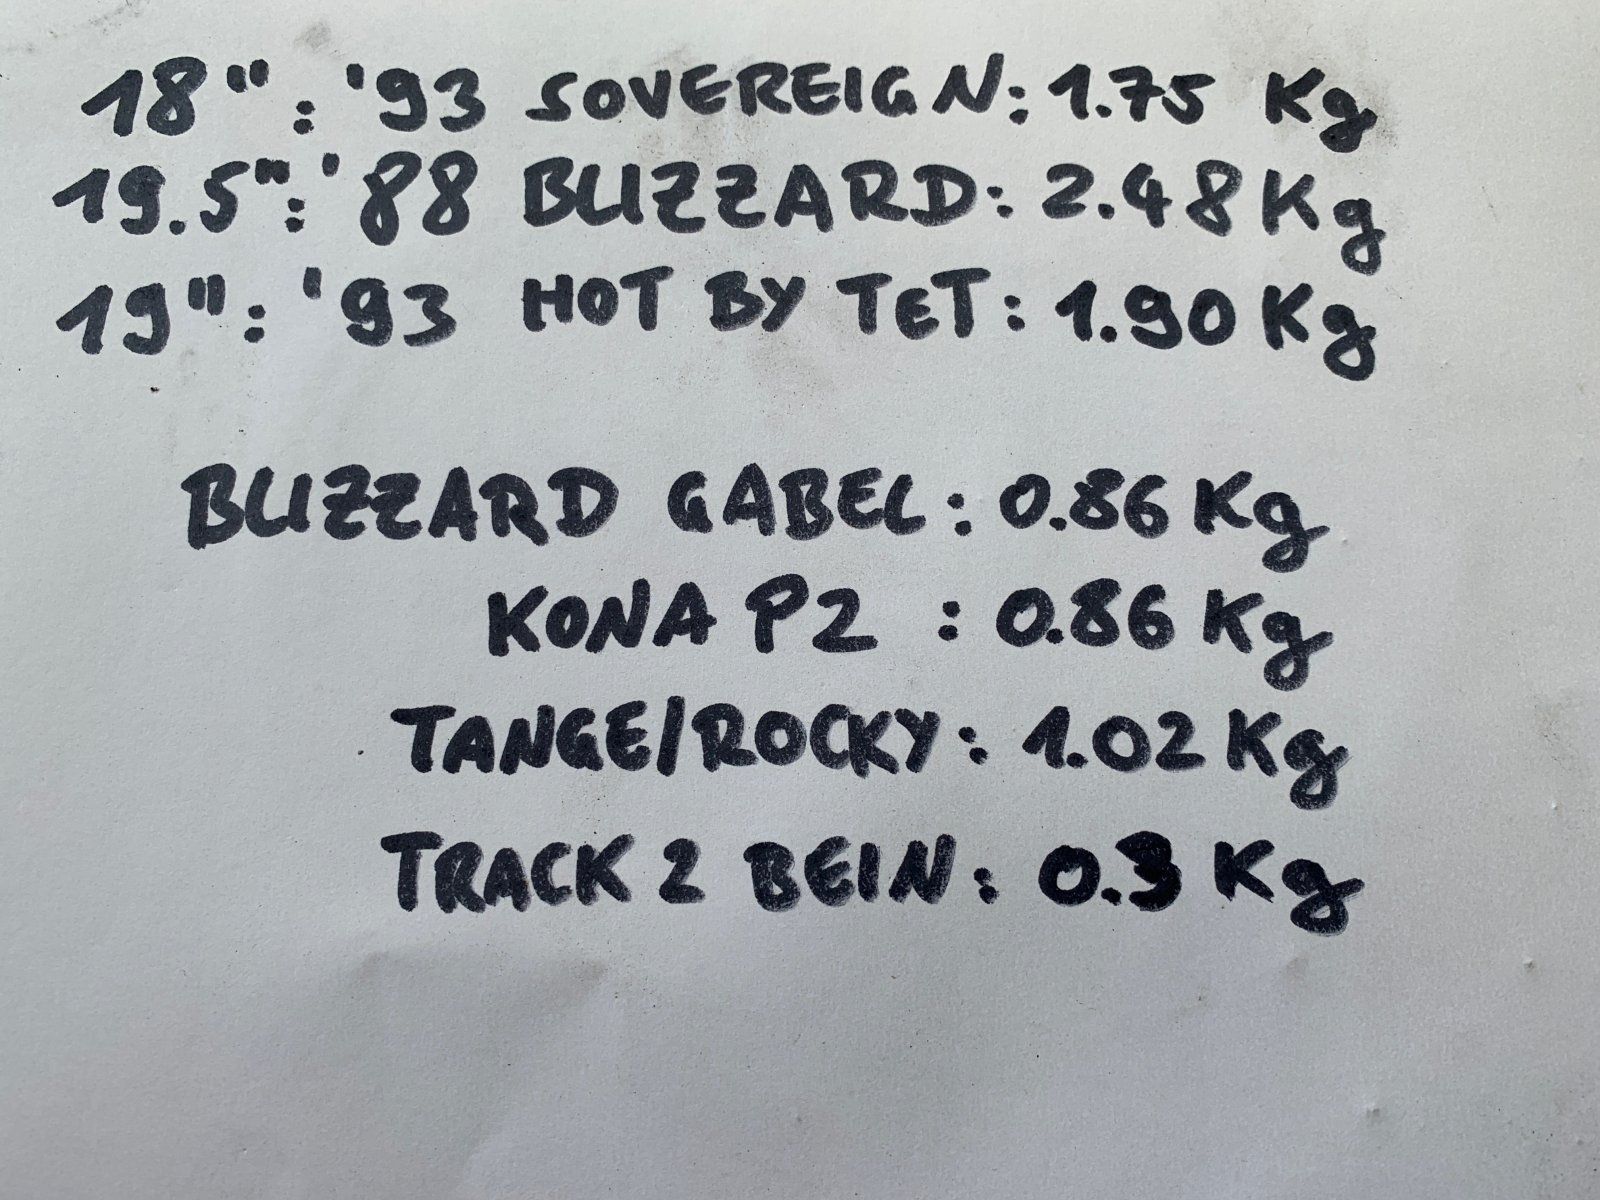 18": '93 SOVEREIGN: 1.75 Kg
19.5": '88 BLIZZARD: 2.48 Kg
19": '93 HOT BY TET: 1.90 Kg
BLIZZARD GABEL: 0.86 Kg
KONA P2 : 0.86 Kg
TANGE/ROCKY: 1.02 Kg
TRACK 2 BEIN: 0.3 Kg